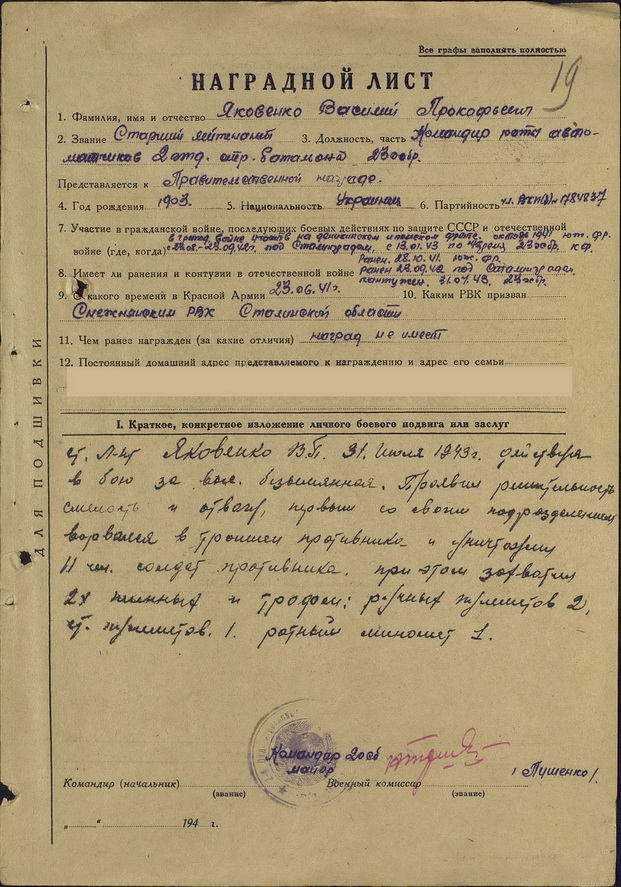 Все графы заполнять полностью
19
НАГРАДНОЙ ЛИСТ
1. Фамилия, имя и отчество Яковенко Василий Прокофьевич
2. Звание Старший лейтенант 3. Должность, часть Командир роты авто-
матчиков 2 отд. стр. батальона 23 осбр.
Представляется к Правительственной награде.
4. Год рождения 1903. 5. Национальность Украинец 6. Партийность
7. Участие в гражданской войне, последующих боевых действиях по защите СССР и отечественной
в гражд. войне участв. на деникинском фронте. октябрь 1941 юж. фр.
войне (где, когда) 23.09.42г. под Сталинградом, с 13.01.43 по
Ранен. 28.10.41. юж. фр.
8. Имеет ли ранения и контузии в отечественной войне Ранен 23.09.42 под Сталинградом.
контужен. 31.07.43,
9. С какого времени в Красной Армии 23.06.41г. 10. Каким РВК призван
Снежнянским РВК Сталинской области
11. Чем ранее награжден (за какие отличия) наград не имеет
12. Постоянный домашний адрес представляемого к награждению и адрес его семьи
ДЛЯ ПОДШИВКИ
I. Краткое, конкретное изложение личного боевого подвига или заслуг
ст. л-нт Яковенко В.П. 31. Июля 1943г. действуя
в бою за выс. безымянная. Проявил решительность
смелость и отвагу, первым со своим подразделением
ворвался в траншеи противника и уничтожил
11 чел. солдат противника. при этом захватил
2х пленных и трофеи: ручных пулеметов 2,
ст. пулеметов. 1. ротный миномет 1.
Командир 2 осб
майор
/ Пушенко /.
Командир (начальник) Военный комиссар
(звание) (звание)
„ “ 194 г.